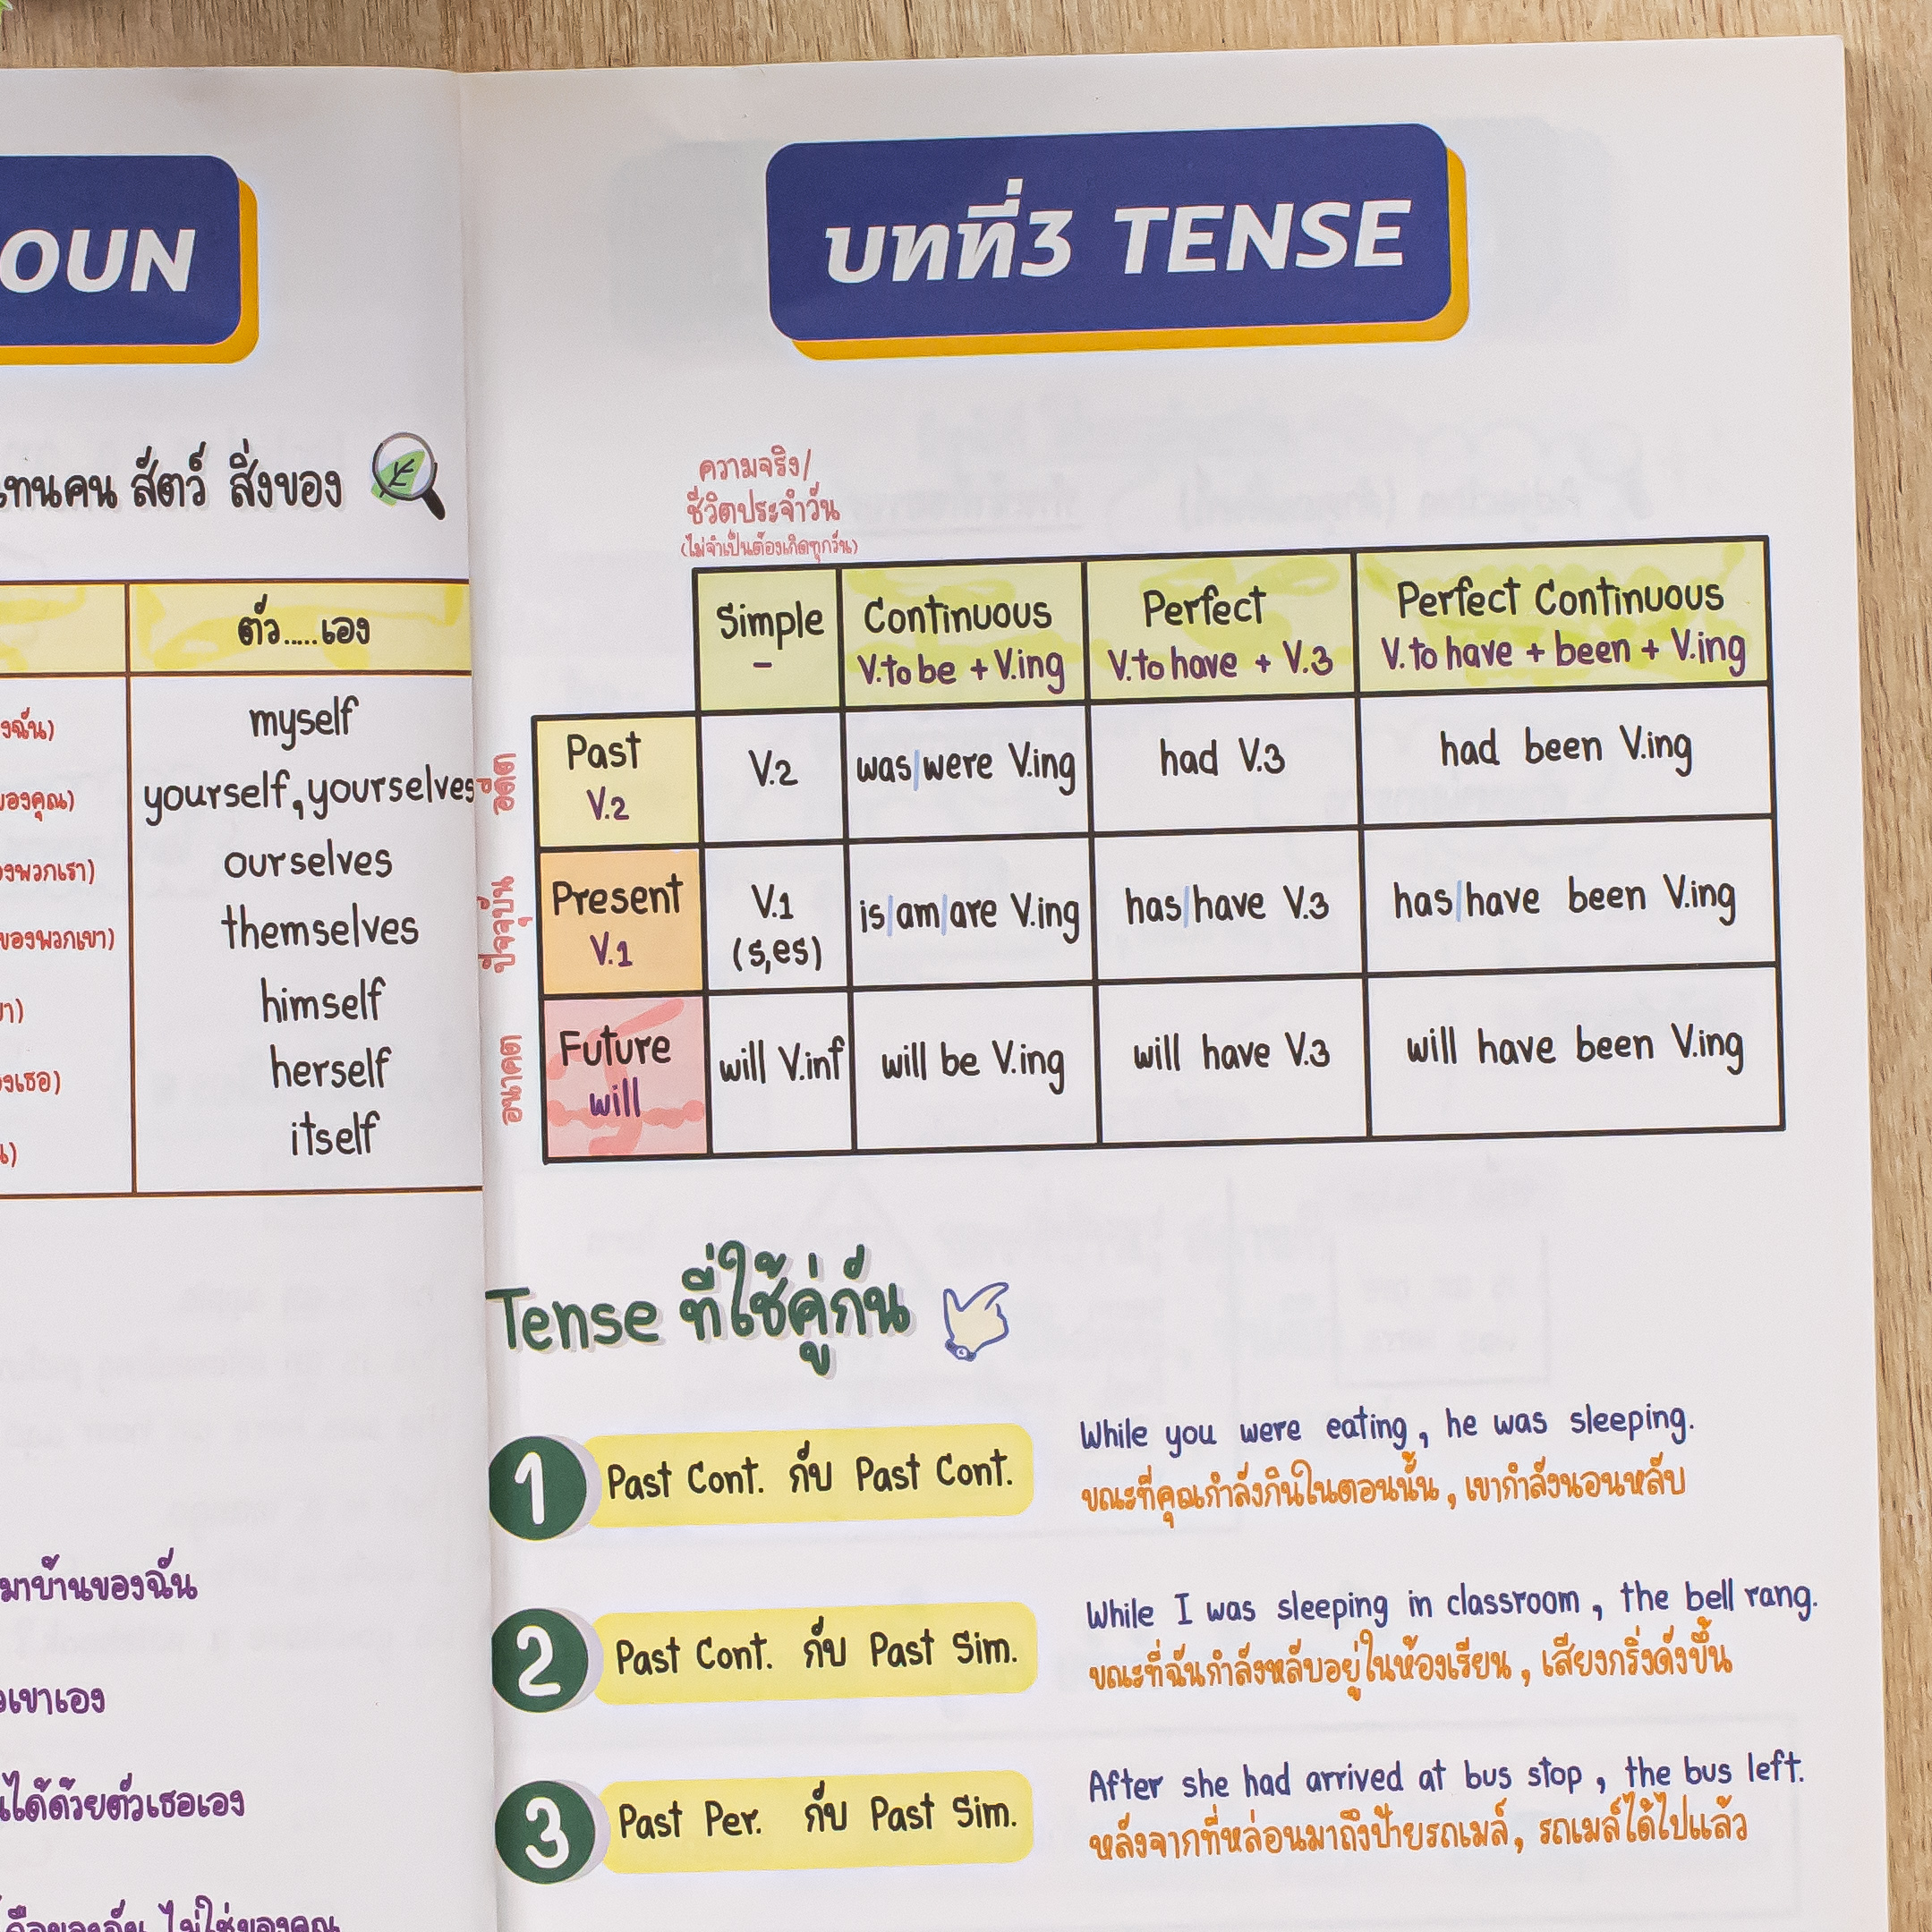 OUN
สัตว์ สิ่งของ
ตัว.....เอง
myself
yourself, yourselves
ourselves
themselves
himself
herself
itself
มาบ้านของฉัน
บทที่3 TENSE
ความจริง/
ชีวิตประจำวัน
(ไม่จำเป็นต้องเกิดทุกวัน)
Simple Continuous Perfect Perfect Continuous
- V.to be + V.ing V.to have + V.3 V.to have + been + V.ing
อดีต Past V.2 V.2 was/were V.ing had V.3 had been V.ing
ปัจจุบัน Present V.1 V.1 (s,es) is/am/are V.ing has/have V.3 has/have been V.ing
อนาคต Future will will V.inf will be V.ing will have V.3 will have been V.ing
Tense ที่ใช้คู่กัน
1 Past Cont. กับ Past Cont.
While you were eating, he was sleeping.
ขณะที่คุณกำลังกินในตอนนั้น, เขากำลังนอนหลับ
2 Past Cont. กับ Past Sim.
While I was sleeping in classroom, the bell rang.
ขณะที่ฉันกำลังหลับอยู่ในห้องเรียน, เสียงกริ่งดังขึ้น
3 Past Per. กับ Past Sim.
After she had arrived at bus stop, the bus left.
หลังจากที่หล่อนมาถึงป้ายรถเมล์, รถเมล์ได้ไปแล้ว